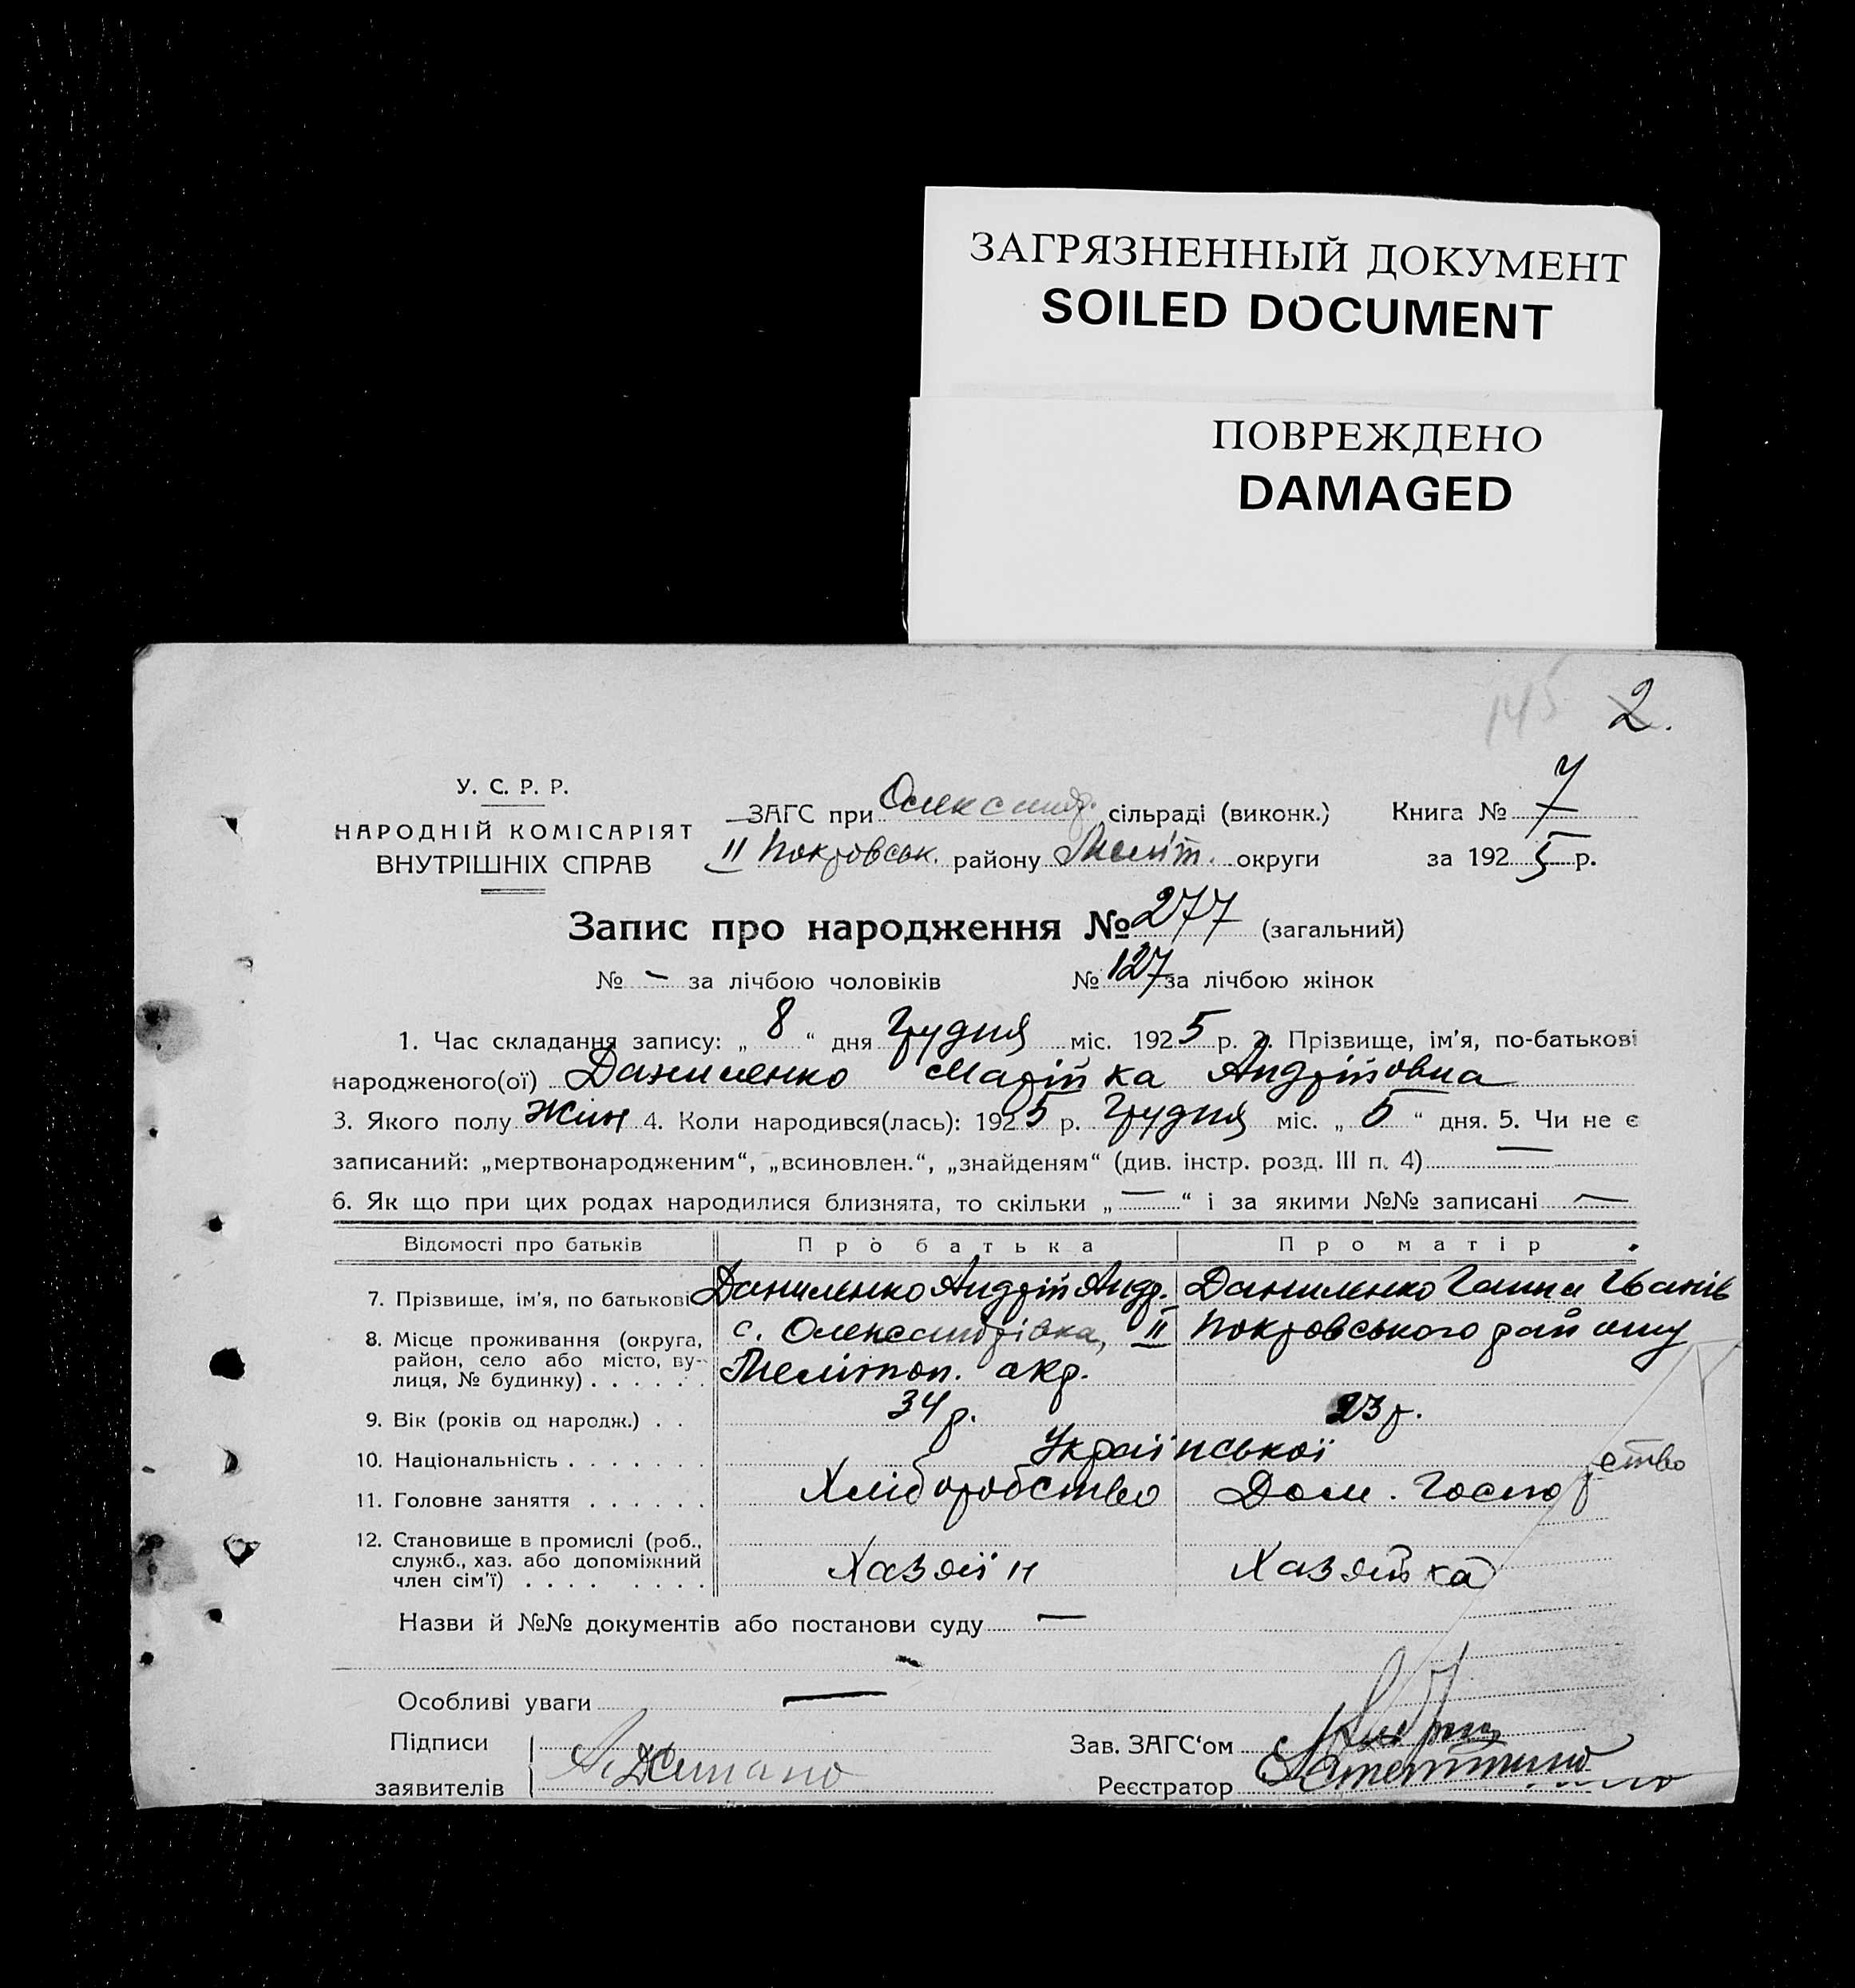 ЗАГРЯЗНЕННЫЙ ДОКУМЕНТ
SOILED DOCUMENT
ПОВРЕЖДЕНО
DAMAGED
145 2.
У. С. Р. Р.
НАРОДНІЙ КОМІСАРІЯТ
ВНУТРІШНІХ СПРАВ
ЗАГС при Олександ. сільраді (виконк.) Книга № 7
II Покровськ. району Меліт. округи за 1925 р.
Запис про народження № 277 (загальний)
№ – за лічбою чоловіків № 127 за лічбою жінок
1. Час складання запису: „ 8 “ дня Грудня міс. 1925 р. 2. Прізвище, ім'я, по-батькові
народженого(ої) Даниленко Марійка Андрійовна
3. Якого полу Жін 4. Коли народився(лась): 1925 р. Грудня міс. „ 5 “ дня. 5. Чи не є
записаний: „мертвонародженим“, „всиновлен.“, „знайденям“ (див. інстр. розд. III п. 4) —
6. Як що при цих родах народилися близнята, то скільки „ — “ і за якими №№ записані —
Відомості про батьків Про батька Про матір
7. Прізвище, ім'я, по батькові Даниленко Андрій Андр. Даниленко Ганна Іванів
8. Місце проживання (округа, район, село або місто, вулиця, № будинку) . . . . . . с. Олександрівка, II Покровського району
Мелітоп. окр.
9. Вік (років од народж.) . . 34 р. 23 р.
10. Національність . . . . . . . Української
11. Головне заняття . . . . . . Хліборобство Дом. Господарство
12. Становище в промислі (роб., служб., хаз. або допоміжний член сім'ї) . . . . . . . . Хазяїн Хазяйка
Назви й №№ документів або постанови суду —
Особливі уваги —
Підписи
заявителів
Зав. ЗАГС'ом
Реєстратор